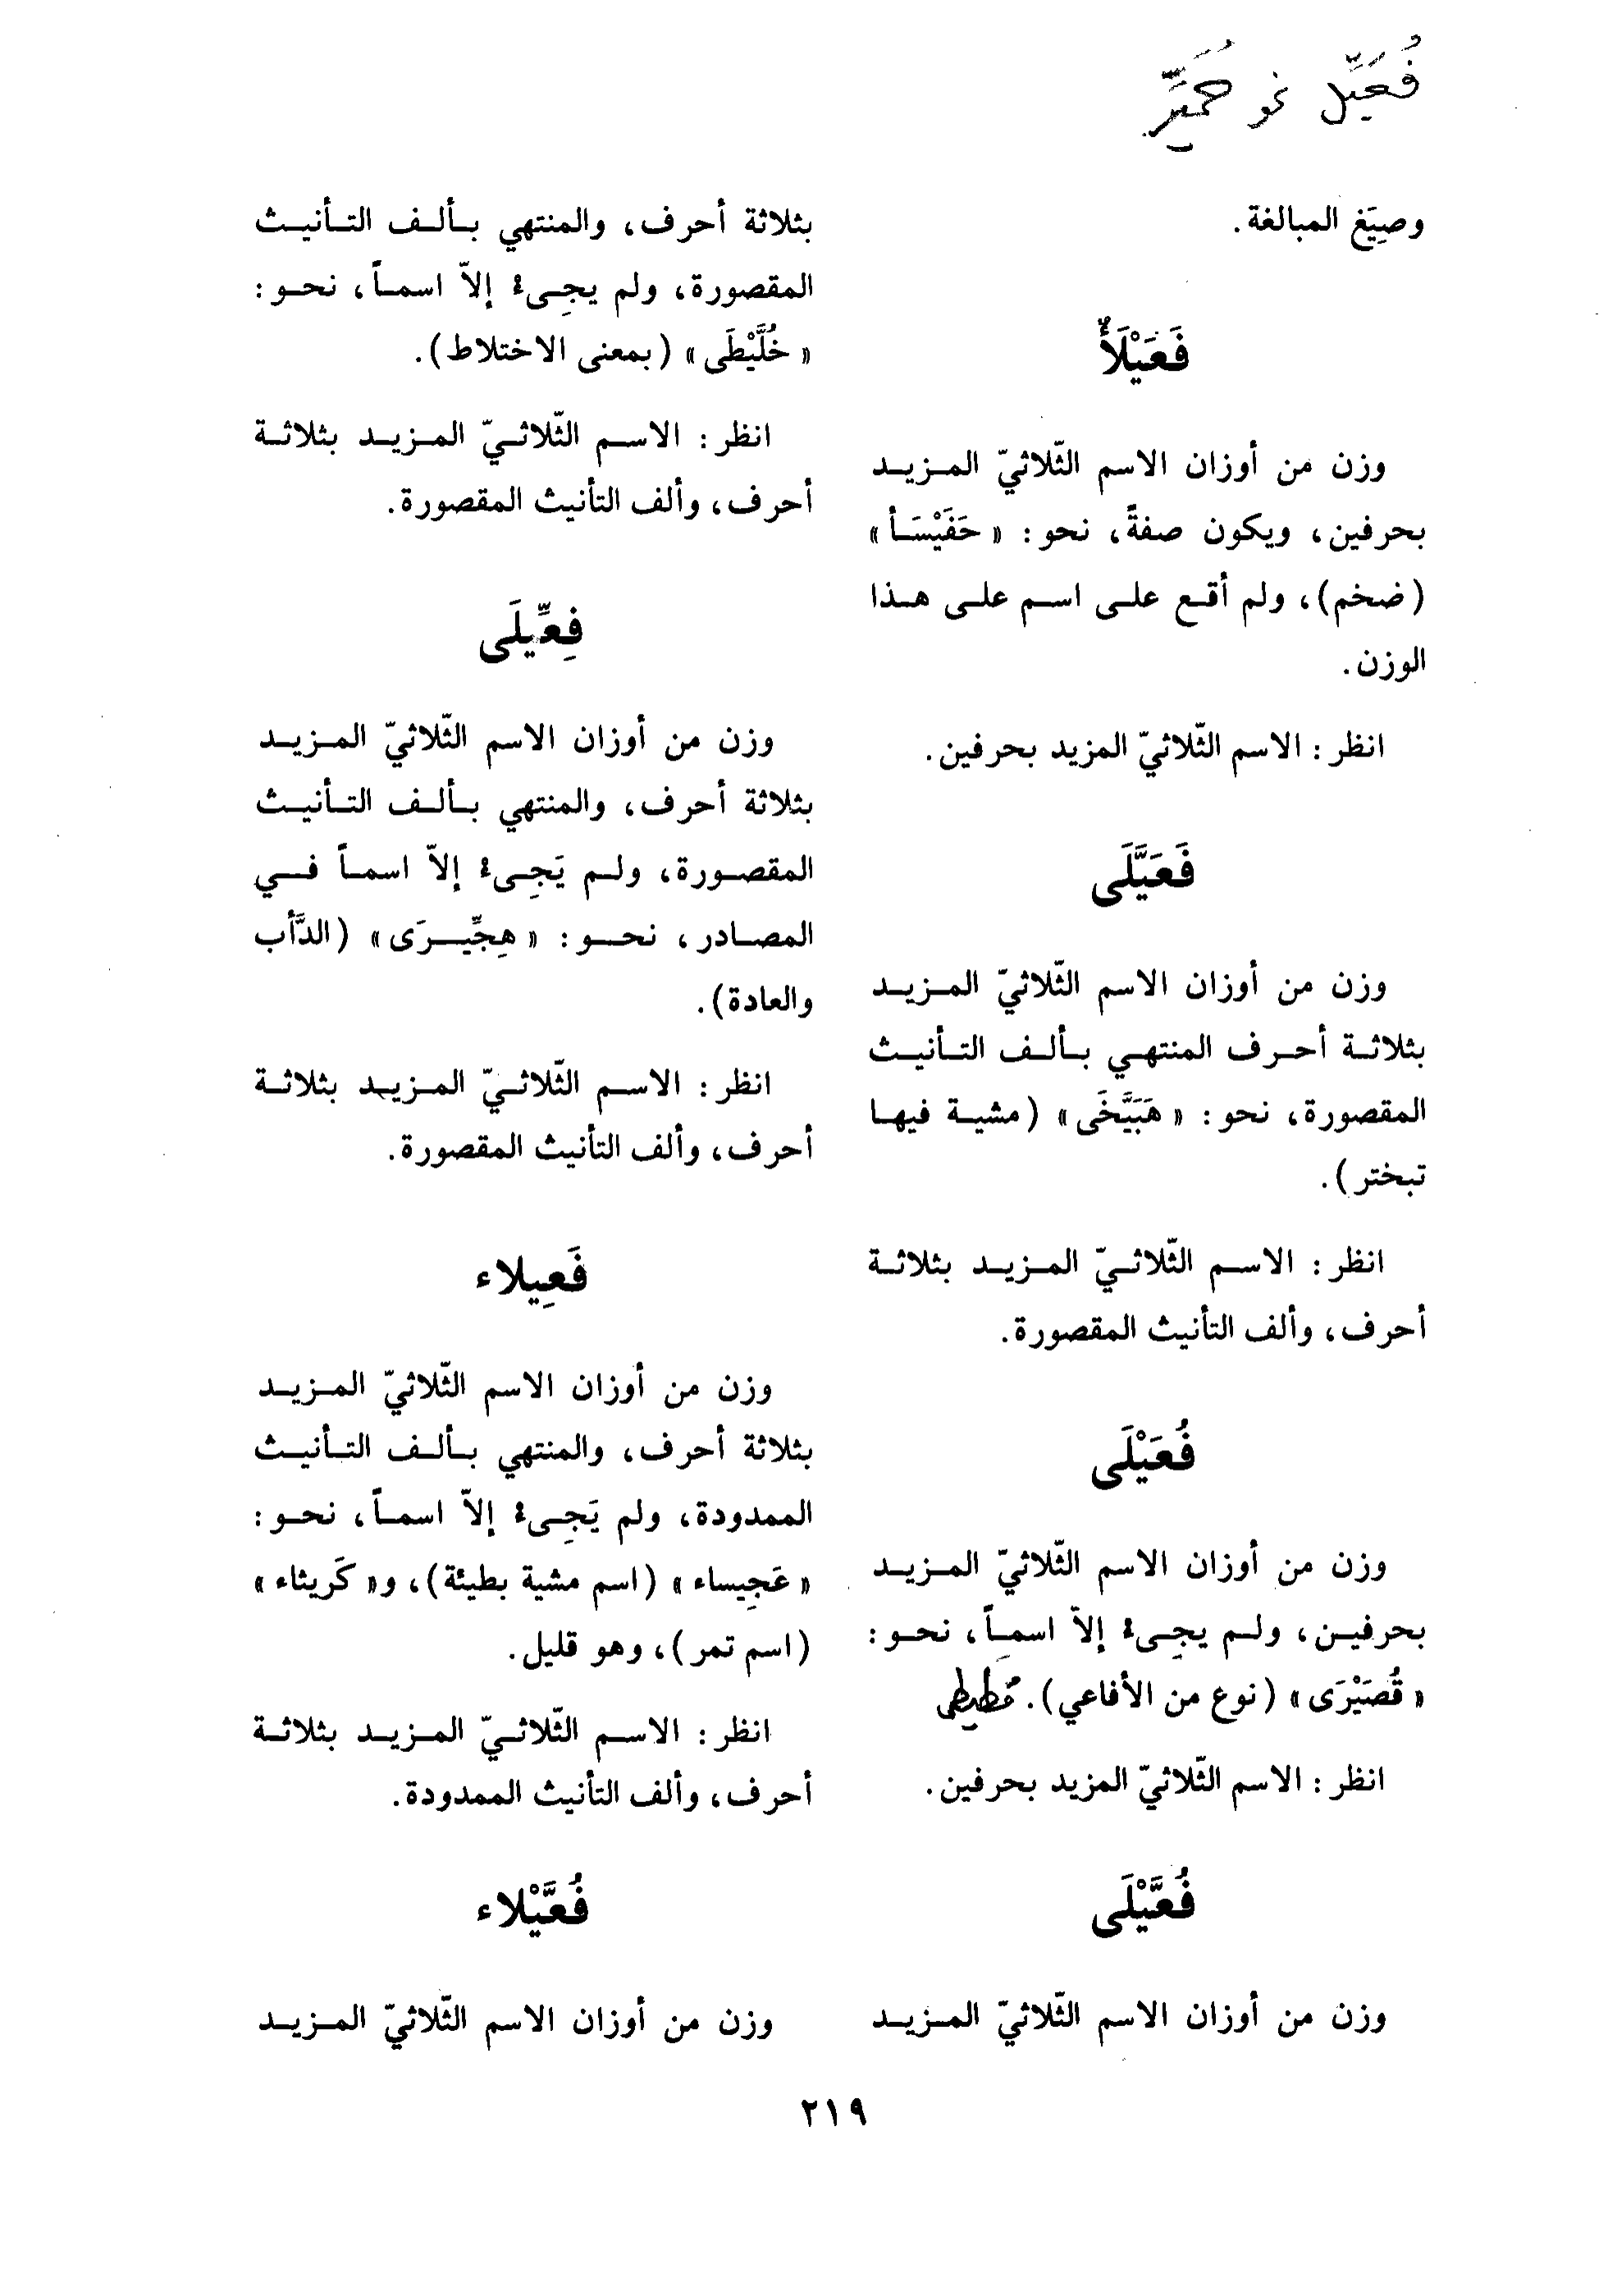 فُعَيِّل نحو حُمَيِّر
وصِيَغ المبالغة.
فَعَيْلَأٌ
وزن من أوزان الاسم الثّلاثيّ المـزيـد
بحرفين، ويكون صفةً، نحو: «حَفَيْسَـأ»
(ضخم)، ولم أقـع علـى اسـم علـى هـذا
الوزن.
انظر: الاسم الثّلاثيّ المزيد بحرفين.
فَعَيَّلَى
وزن من أوزان الاسم الثّلاثيّ المـزيـد
بثلاثـة أحـرف المنتهـي بـألـف التـأنيـث
المقصورة، نحو: «هَبَيَّخَى» (مشيـة فيهـا
تبختر).
انظر: الاسـم الثّلاثـيّ المـزيـد بثلاثـة
أحرف، وألف التأنيث المقصورة.
فُعَيْلَى
وزن من أوزان الاسم الثّلاثيّ المـزيـد
بحرفيـن، ولـم يجِـىء إلاّ اسمـاً، نحـو:
«قُصَيْرَى» (نوع من الأفاعي).
انظر: الاسم الثّلاثيّ المزيد بحرفين.
فُعَّيْلَى
وزن من أوزان الاسم الثّلاثيّ المـزيـد
بثلاثة أحرف، والمنتهي بـألـف التـأنيـث
المقصورة، ولم يجِـىء إلاّ اسمـاً، نحـو:
«خُلَّيْطَى» (بمعنى الاختلاط).
انظر: الاسـم الثّلاثـيّ المـزيـد بثلاثـة
أحرف، وألف التأنيث المقصورة.
فِعِّيلَى
وزن من أوزان الاسم الثّلاثيّ المـزيـد
بثلاثة أحرف، والمنتهي بـألـف التـأنيـث
المقصـورة، ولـم يَجِـىء إلاّ اسمـاً فـي
المصـادر، نحـو: «هِجِّيـرَى» (الدَّأب
والعادة).
انظر: الاسـم الثّلاثـيّ المـزيـد بثلاثـة
أحرف، وألف التأنيث المقصورة.
فَعِيلاء
وزن من أوزان الاسم الثّلاثيّ المـزيـد
بثلاثة أحرف، والمنتهي بـألـف التـأنيـث
الممدودة، ولم يَجِـىء إلاّ اسمـاً، نحـو:
«عَجِيساء» (اسم مشية بطيئة)، و«كَريثاء»
(اسم تمر)، وهو قليل.
انظر: الاسـم الثّلاثـيّ المـزيـد بثلاثـة
أحرف، وألف التأنيث الممدودة.
فُعَّيْلاء
وزن من أوزان الاسم الثّلاثيّ المـزيـد
٢١٩